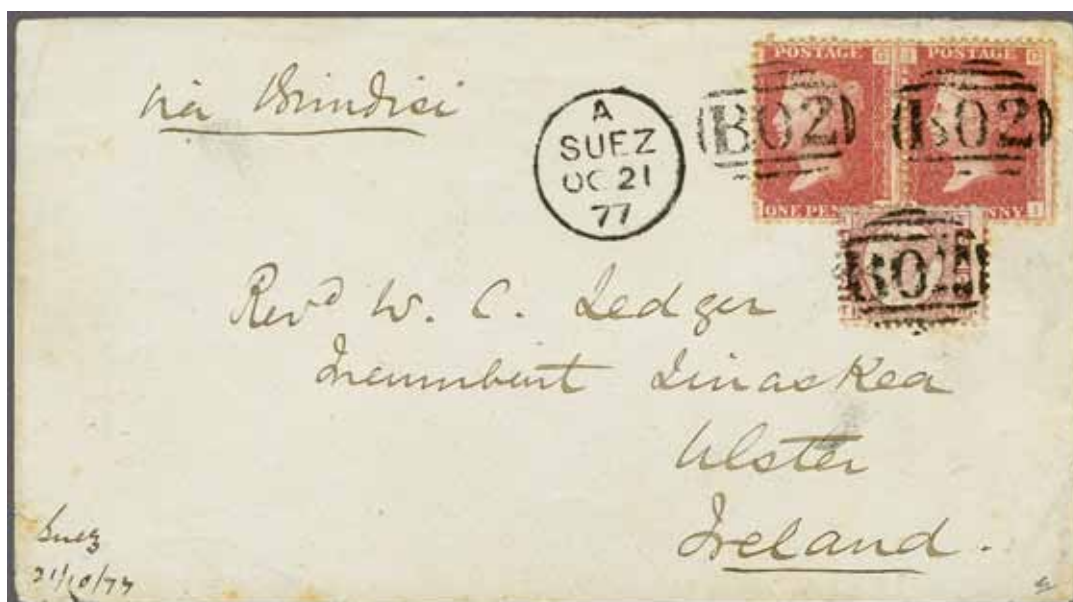 via Brindisi
A
SUEZ
OC 21
77
POSTAGE G
POSTAGE G
B02
B02
ONE PEN
NNY I
B02
Revd W. C. Ledger
Incumbent Linaskea
Ulster
Ireland.
Suez
21/10/77